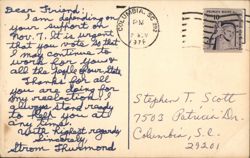 Dear Friend:
I am depending on
your support on
Nov. 7. It is urgent
that you vote so that
I may continue to
work for you &
all the people of our State.
Thanks for all
you are doing for
my reelection. I
always stand ready
to help you at
any time.
With highest regards,
Sincerely,
Strom Thurmond
COLUMBIA, SC
PM
NOV
1978
10
Stephen T. Scott
7503 Patricia Dr.
Columbia, S.C.
29201